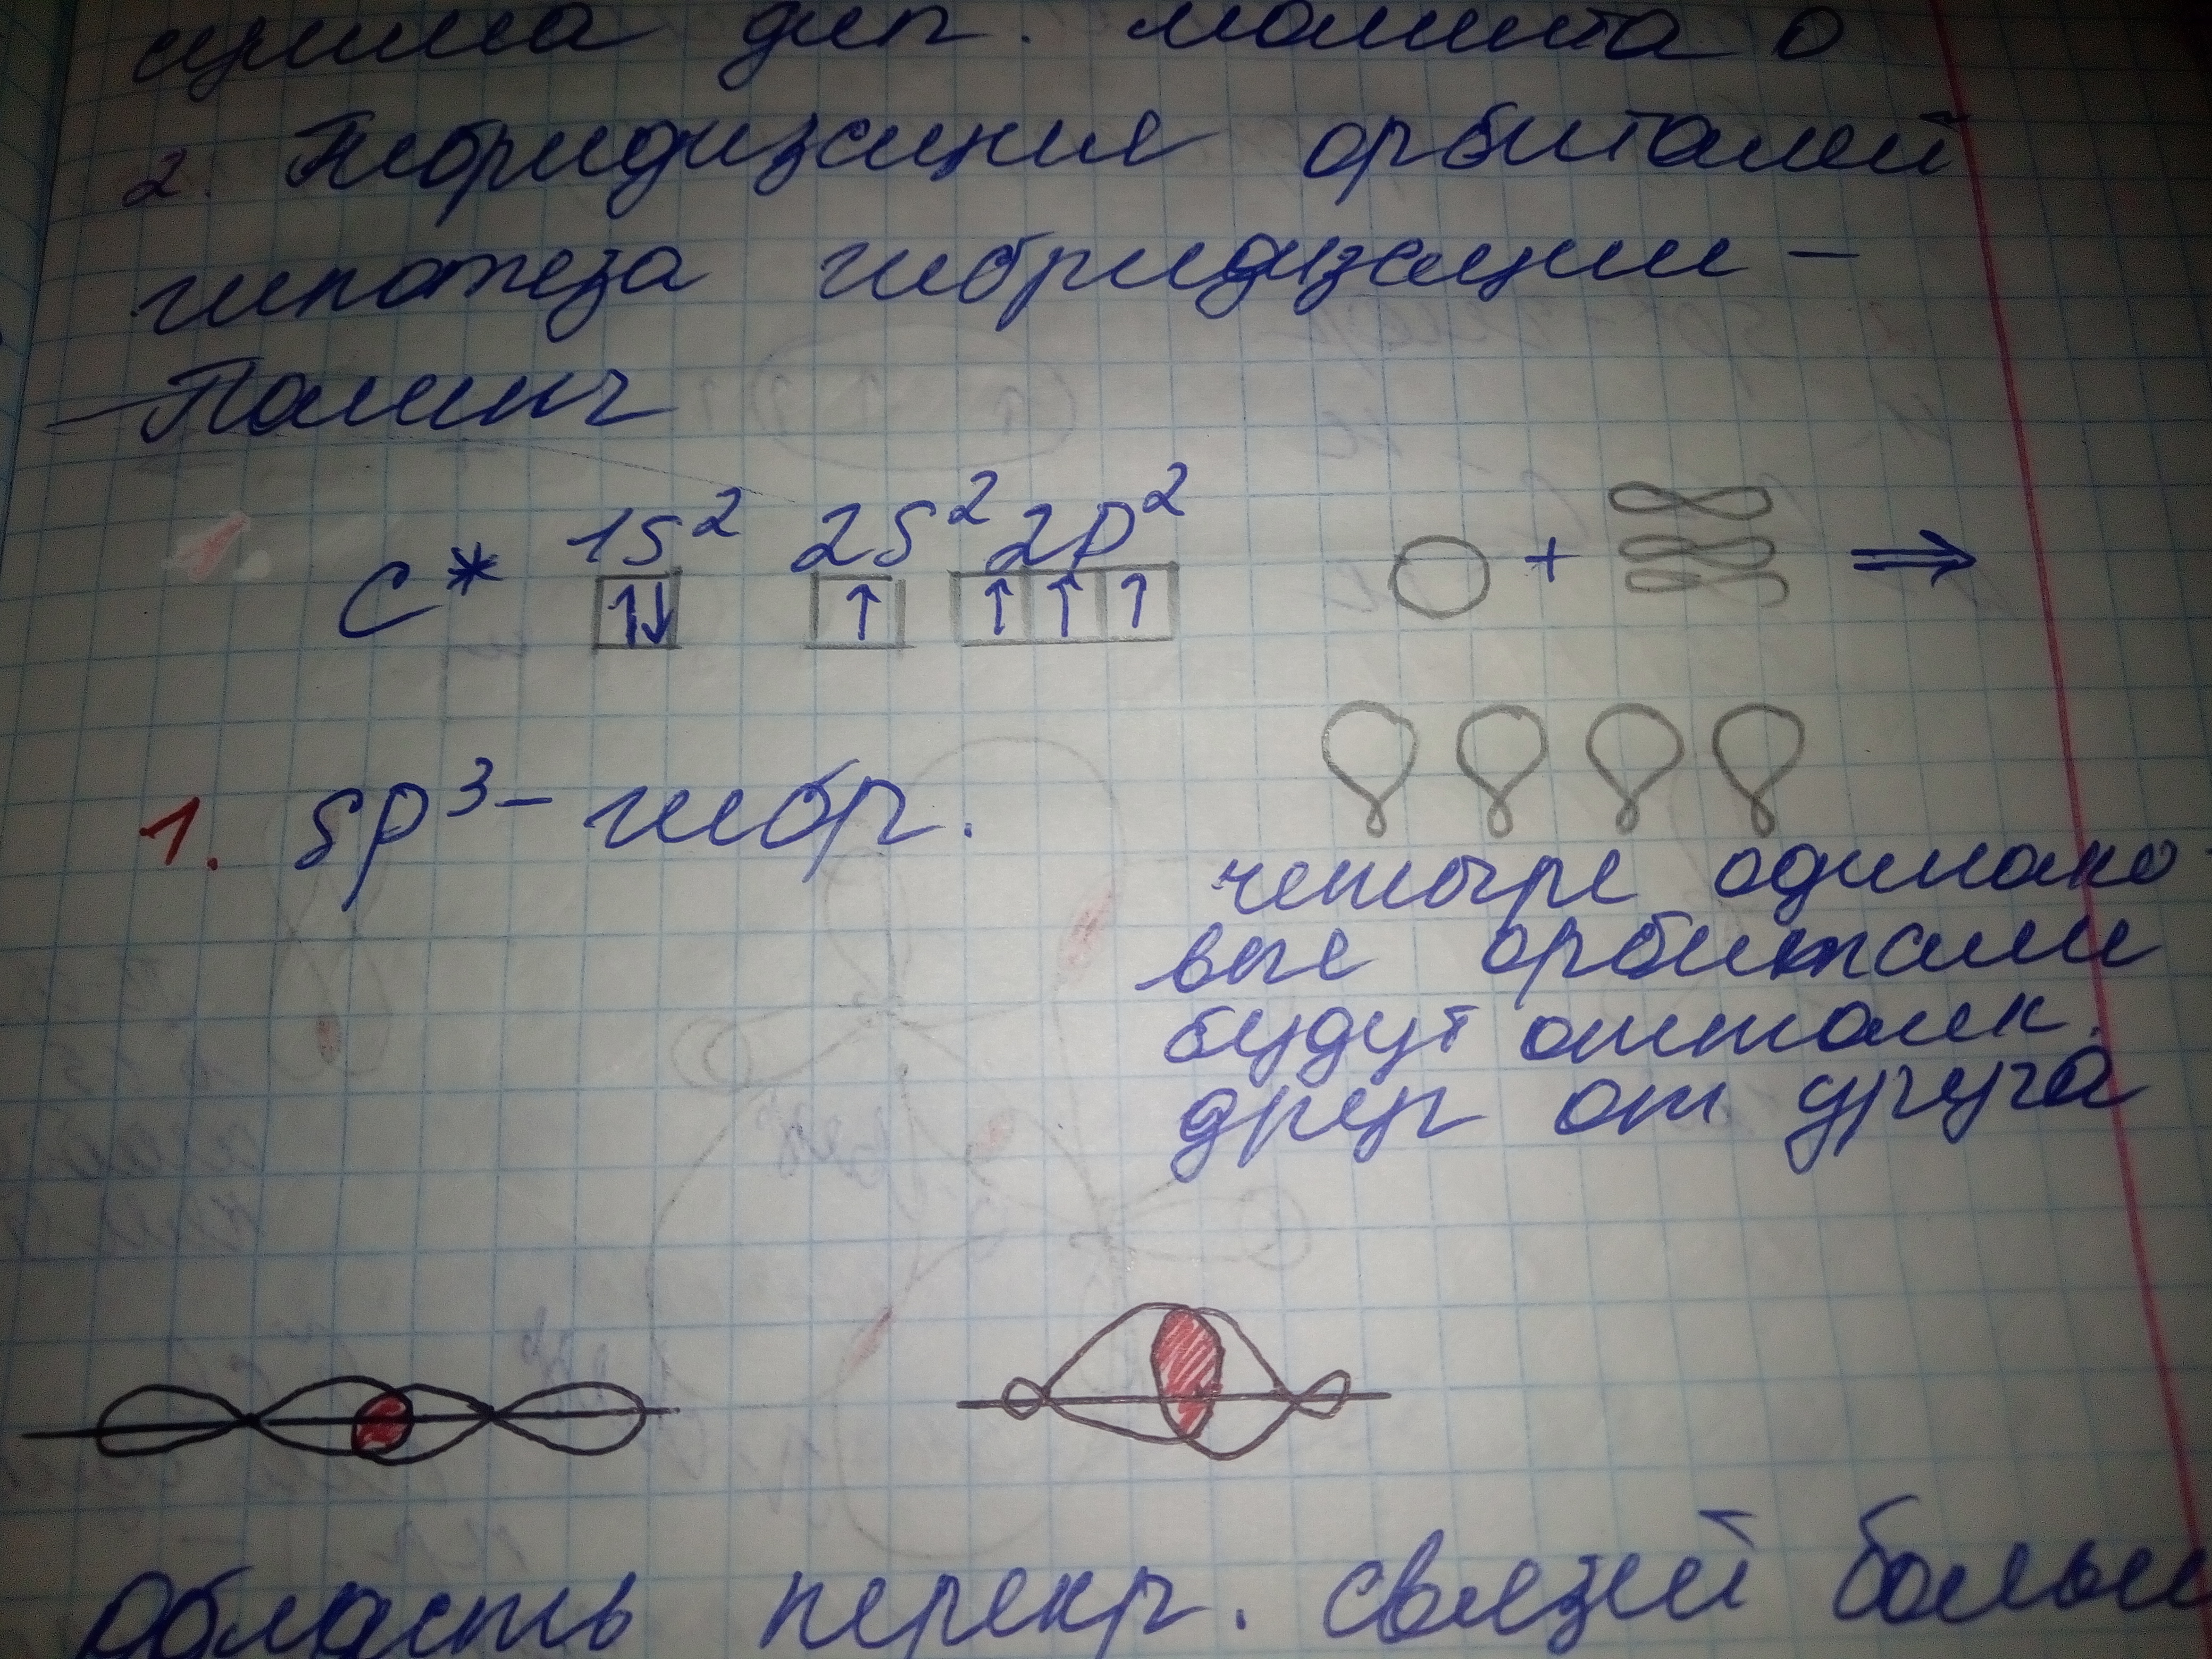 дип. момента 0
2. Гибридизация орбиталей
гипотеза гибридизации –
– Полинг
C* 1s² 2s² 2p²
↑↓ ↑ ↑ ↑ ↑
+ ⇒
1. sp³ – гибр.
четыре одинако-
вые орбитали
будут отталк.
друг от друга
Область перекр. связей больш